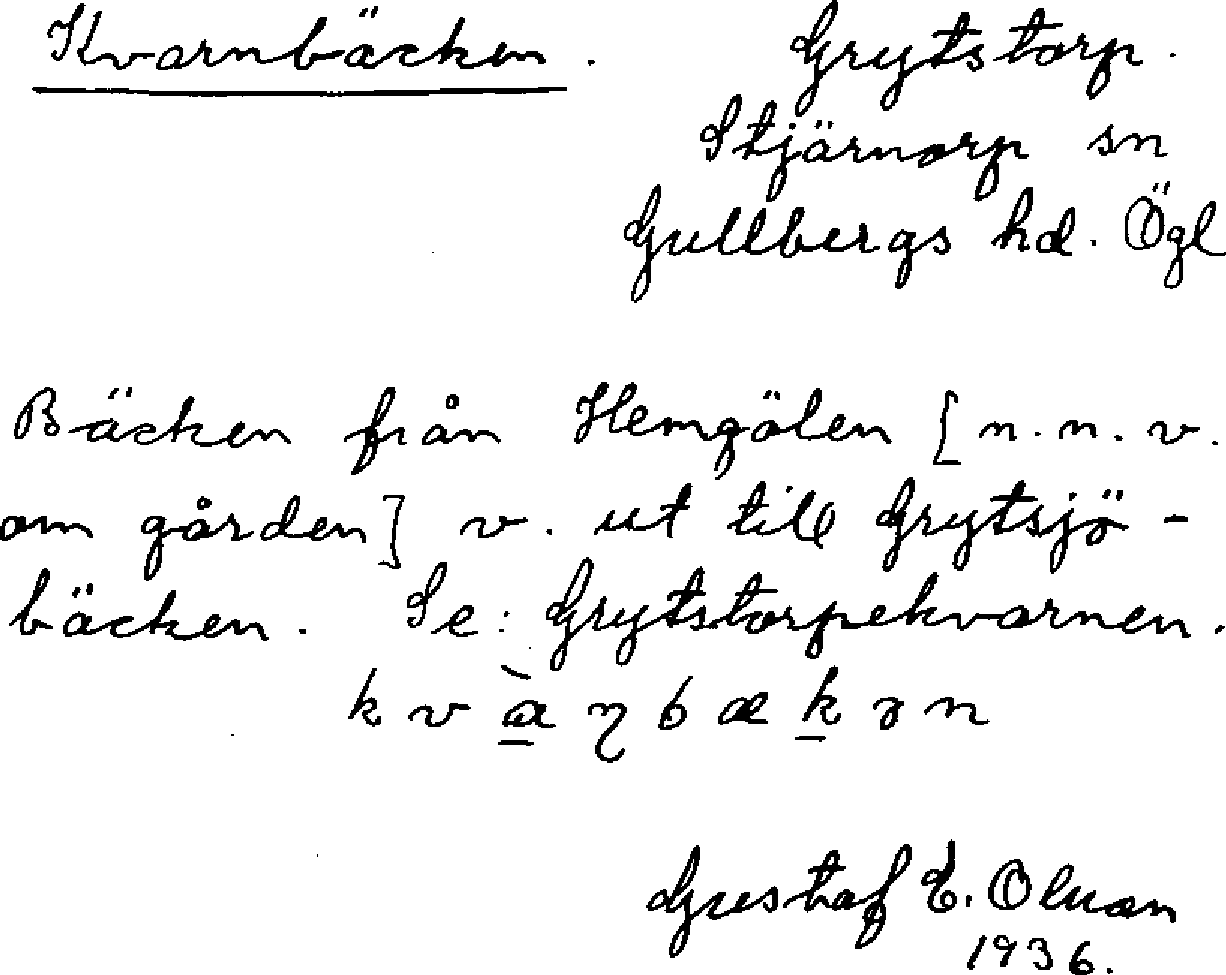 Kvarnbäcken. Grytstorp.
Stjärnorp sn
Gullbergs hd. Ögl
Bäcken från Hemgölen [n.n.v.
om gården] v. ut till Grytsjö-
bäcken. Se: Grytstorpekvarnen.
kv̀aɳbækən
Gustaf E. Olsson
1936.